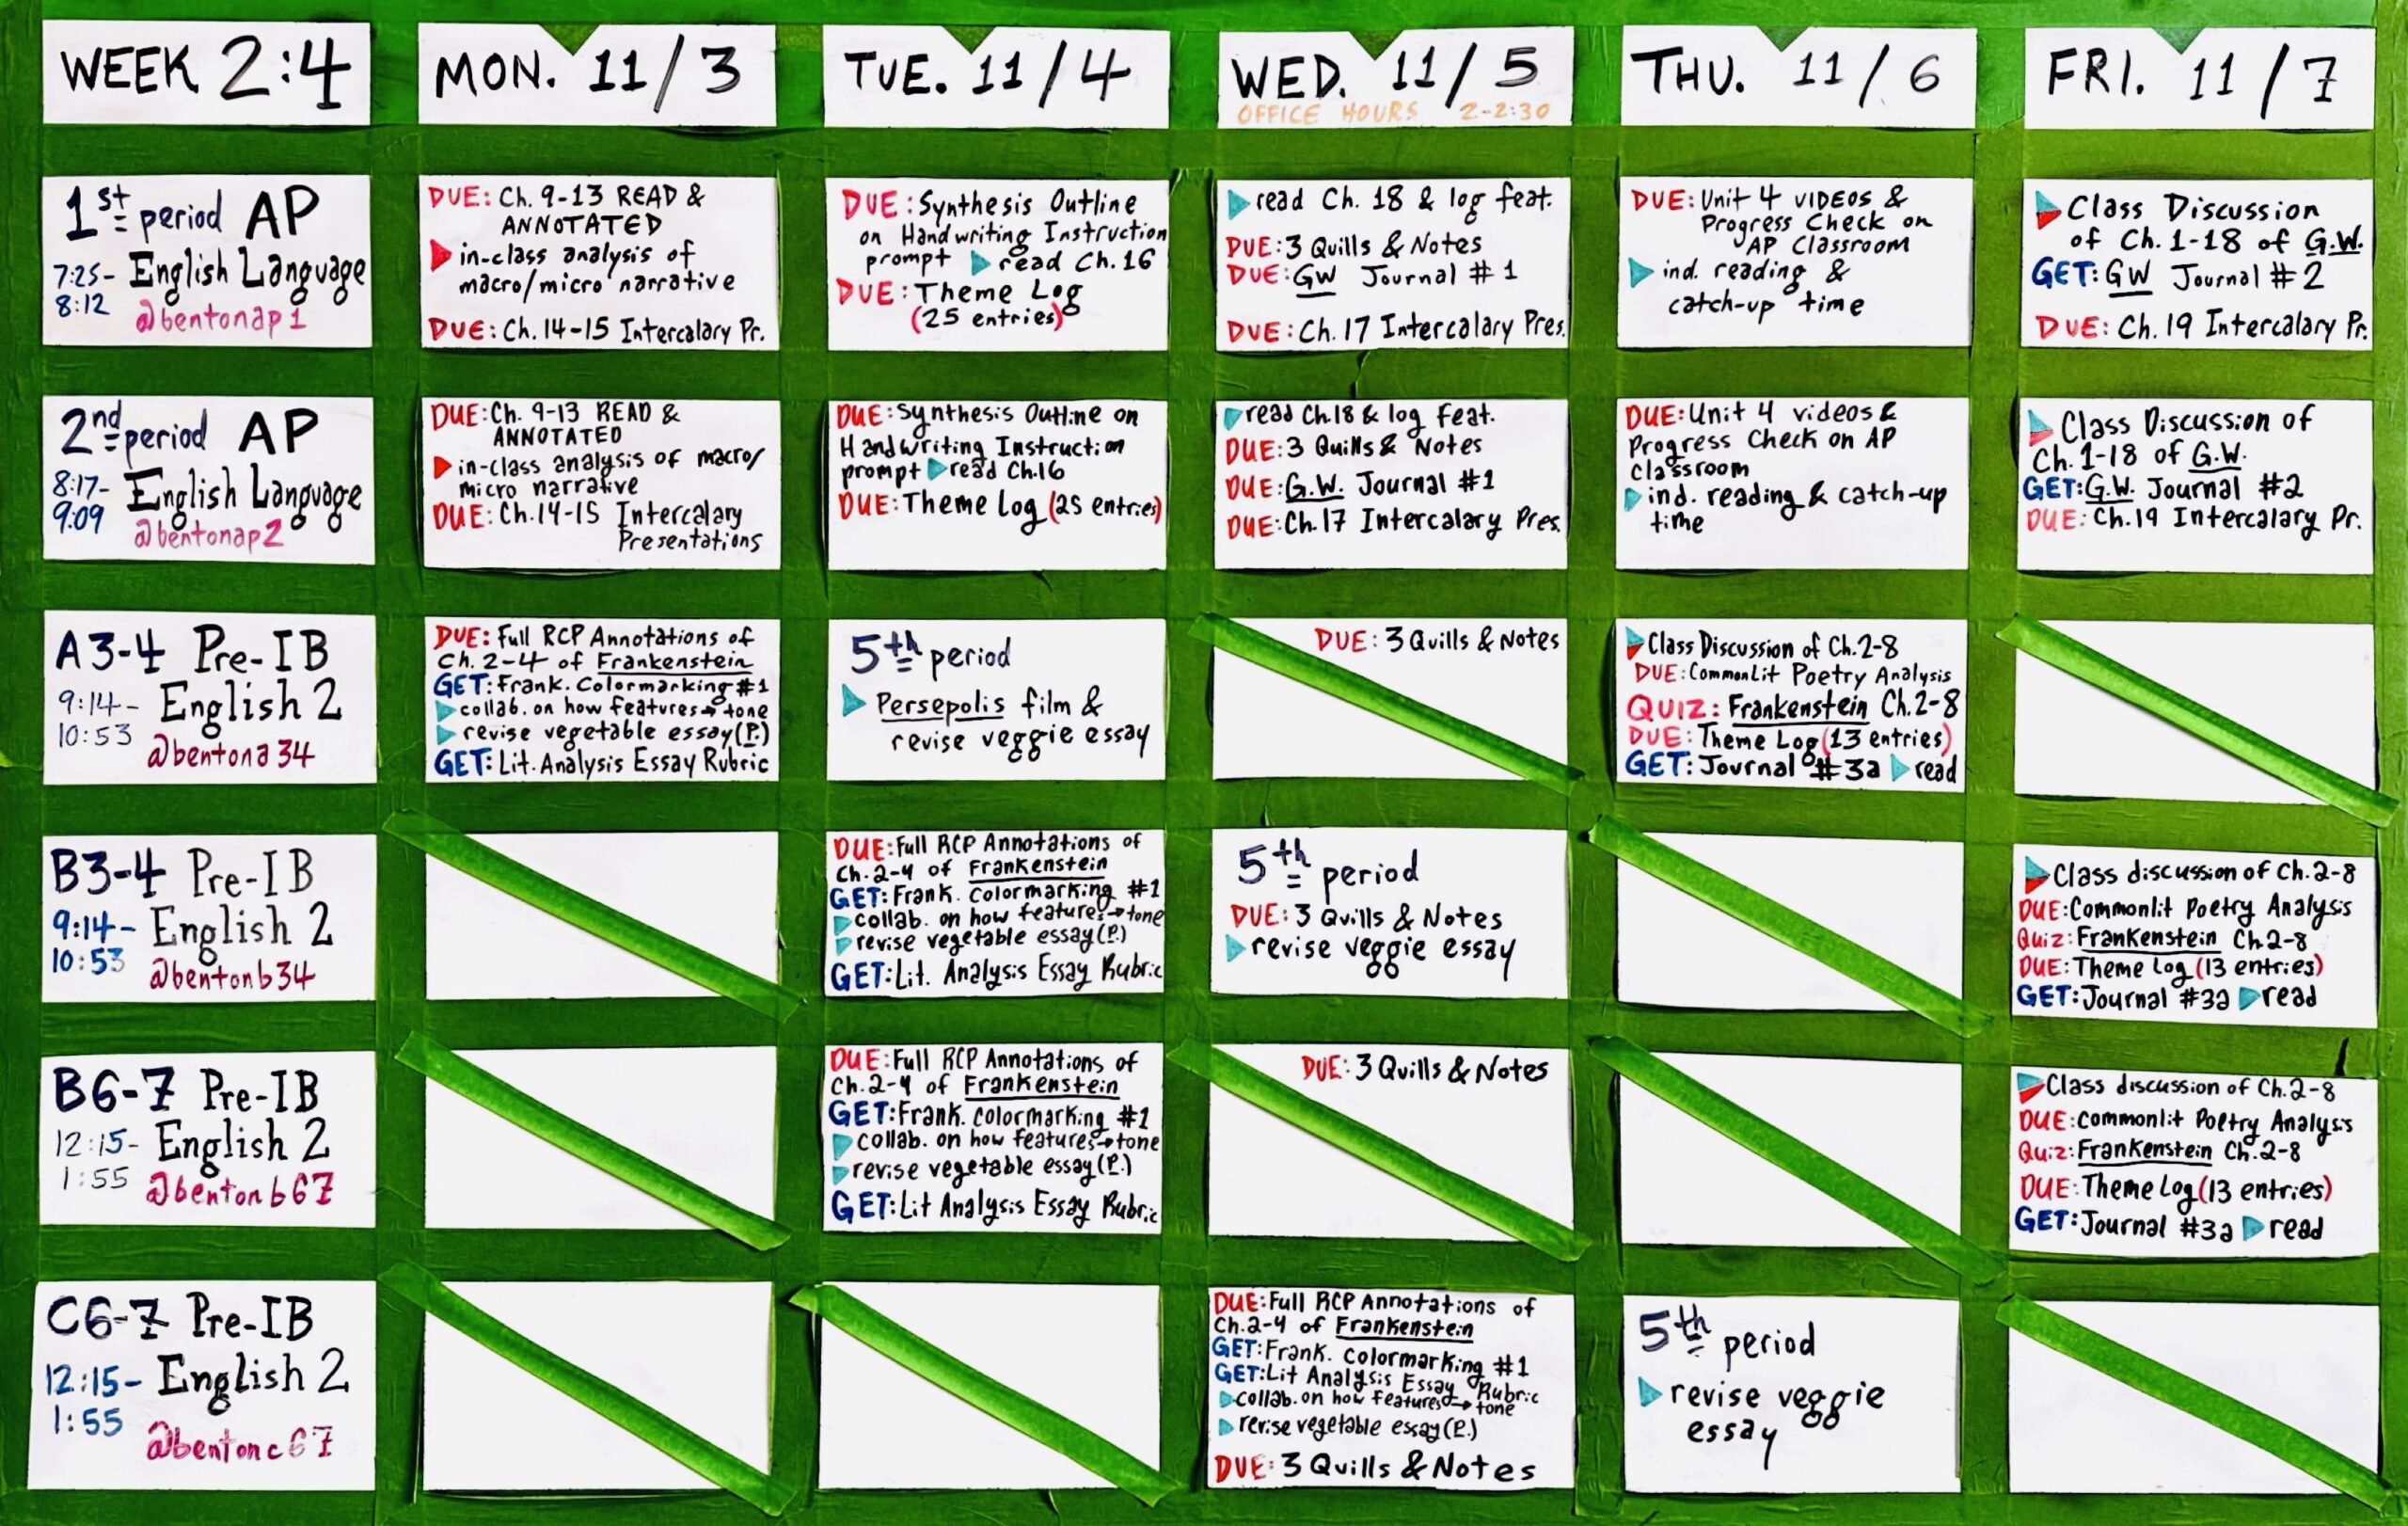 WEEK 2:4
MON. 11/3
TUE. 11/4
WED. 11/5
OFFICE HOURS 2-2:30
THU. 11/6
FRI. 11/7
1st period AP
7:25-8:12
English Language
@bentonap1
DUE: Ch. 9-13 READ &
ANNOTATED
in-class analysis of
macro/micro narrative
DUE: Ch. 14-15 Intercalary Pr.
DUE: Synthesis Outline
on Handwriting Instruction
prompt read Ch. 16
DUE: Theme Log
(25 entries)
read Ch. 18 & log feat.
DUE: 3 Quills & Notes
DUE: GW Journal #1
DUE: Ch. 17 Intercalary Pres.
DUE: Unit 4 videos &
Progress Check on
AP Classroom
ind. reading &
catch-up time
Class Discussion
of Ch. 1-18 of G.W.
GET: GW Journal #2
DUE: Ch. 19 Intercalary Pr.
2nd period AP
8:17-9:09
English Language
@bentonap2
DUE: Ch. 9-13 READ &
ANNOTATED
in-class analysis of macro/
micro narrative
DUE: Ch. 14-15 Intercalary
Presentations
DUE: Synthesis Outline on
Handwriting Instruction
prompt read Ch. 16
DUE: Theme Log (25 entries)
read Ch. 18 & log feat.
DUE: 3 Quills & Notes
DUE: G.W. Journal #1
DUE: Ch. 17 Intercalary Pres.
DUE: Unit 4 videos &
Progress Check on AP
Classroom
ind. reading & catch-up
time
Class Discussion of
Ch. 1-18 of G.W.
GET: G.W. Journal #2
DUE: Ch. 19 Intercalary Pr.
A3-4 Pre-IB
9:14-10:53
English 2
@bentona34
DUE: Full RCP Annotations of
Ch. 2-4 of Frankenstein
GET: Frank. Colormarking #1
collab. on how features→tone
revise vegetable essay (P.)
GET: Lit. Analysis Essay Rubric
5th period
Persepolis film &
revise veggie essay
DUE: 3 Quills & Notes
Class Discussion of Ch. 2-8
DUE: CommonLit Poetry Analysis
QUIZ: Frankenstein Ch. 2-8
DUE: Theme Log (13 entries)
GET: Journal #3a read
B3-4 Pre-IB
9:14-10:53
English 2
@bentonb34
DUE: Full RCP Annotations of
Ch. 2-4 of Frankenstein
GET: Frank. colormarking #1
collab. on how features→tone
revise vegetable essay (P.)
GET: Lit. Analysis Essay Rubric
5th period
DUE: 3 Quills & Notes
revise veggie essay
Class discussion of Ch. 2-8
DUE: Commonlit Poetry Analysis
Quiz: Frankenstein Ch. 2-8
DUE: Theme Log (13 entries)
GET: Journal #3a read
B6-7 Pre-IB
12:15-1:55
English 2
@bentonb67
DUE: Full RCP Annotations of
Ch. 2-4 of Frankenstein
GET: Frank. colormarking #1
collab. on how features→tone
revise vegetable essay (P.)
GET: Lit Analysis Essay Rubric
DUE: 3 Quills & Notes
Class discussion of Ch. 2-8
DUE: commonlit Poetry Analysis
Quiz: Frankenstein Ch. 2-8
DUE: Theme Log (13 entries)
GET: Journal #3a read
C6-7 Pre-IB
12:15-1:55
English 2
@bentonc67
DUE: Full RCP Annotations of
Ch. 2-4 of Frankenstein
GET: Frank. colormarking #1
GET: Lit Analysis Essay Rubric
collab. on how features→tone
revise vegetable essay (P.)
DUE: 3 Quills & Notes
5th period
revise veggie
essay